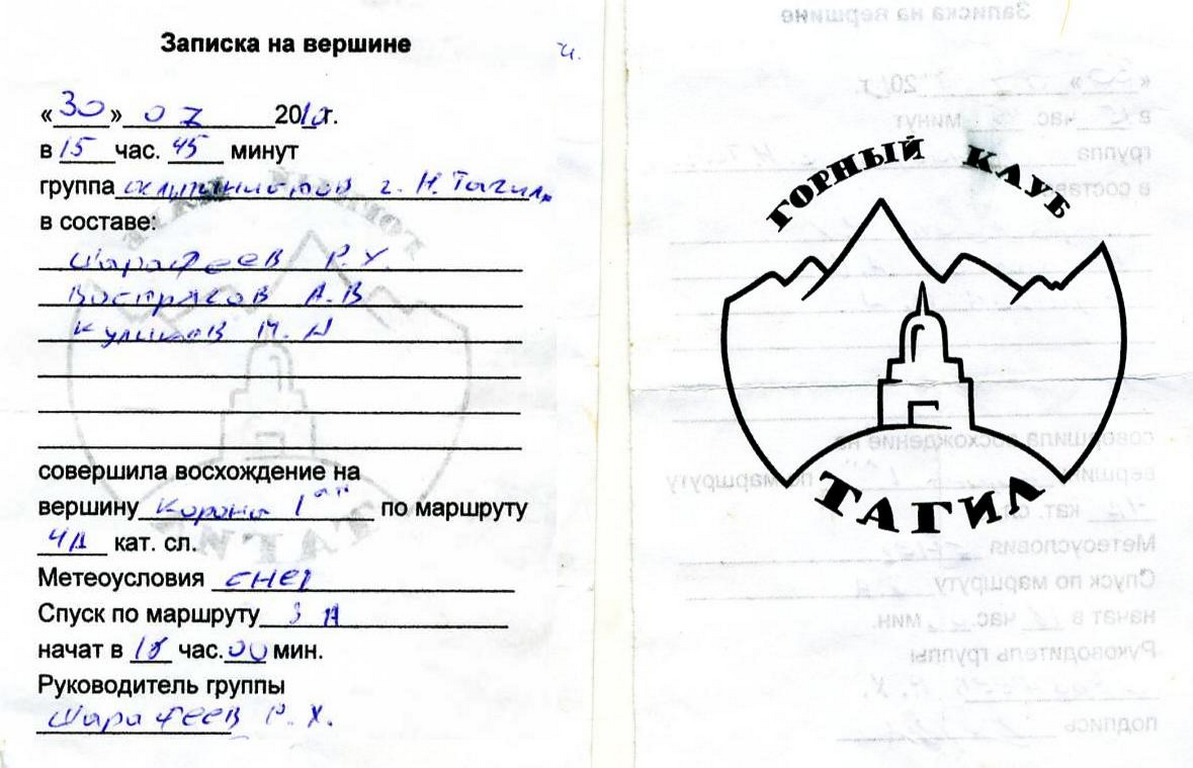 Записка на вершине
«30» 07 2010г.
в 15 час. 45 минут
группа альпинистов г. Н. Тагила
в составе:
Шарафеев Р. Х.
Востряков А. В
Куликов М. Н
совершила восхождение на
вершину Корона 1ая по маршруту
4А кат. сл.
Метеоусловия снег
Спуск по маршруту 3А
начат в час. 00 мин.
Руководитель группы
Шарафеев Р. Х.
ГОРНЫЙ КЛУБ
ТАГИЛ